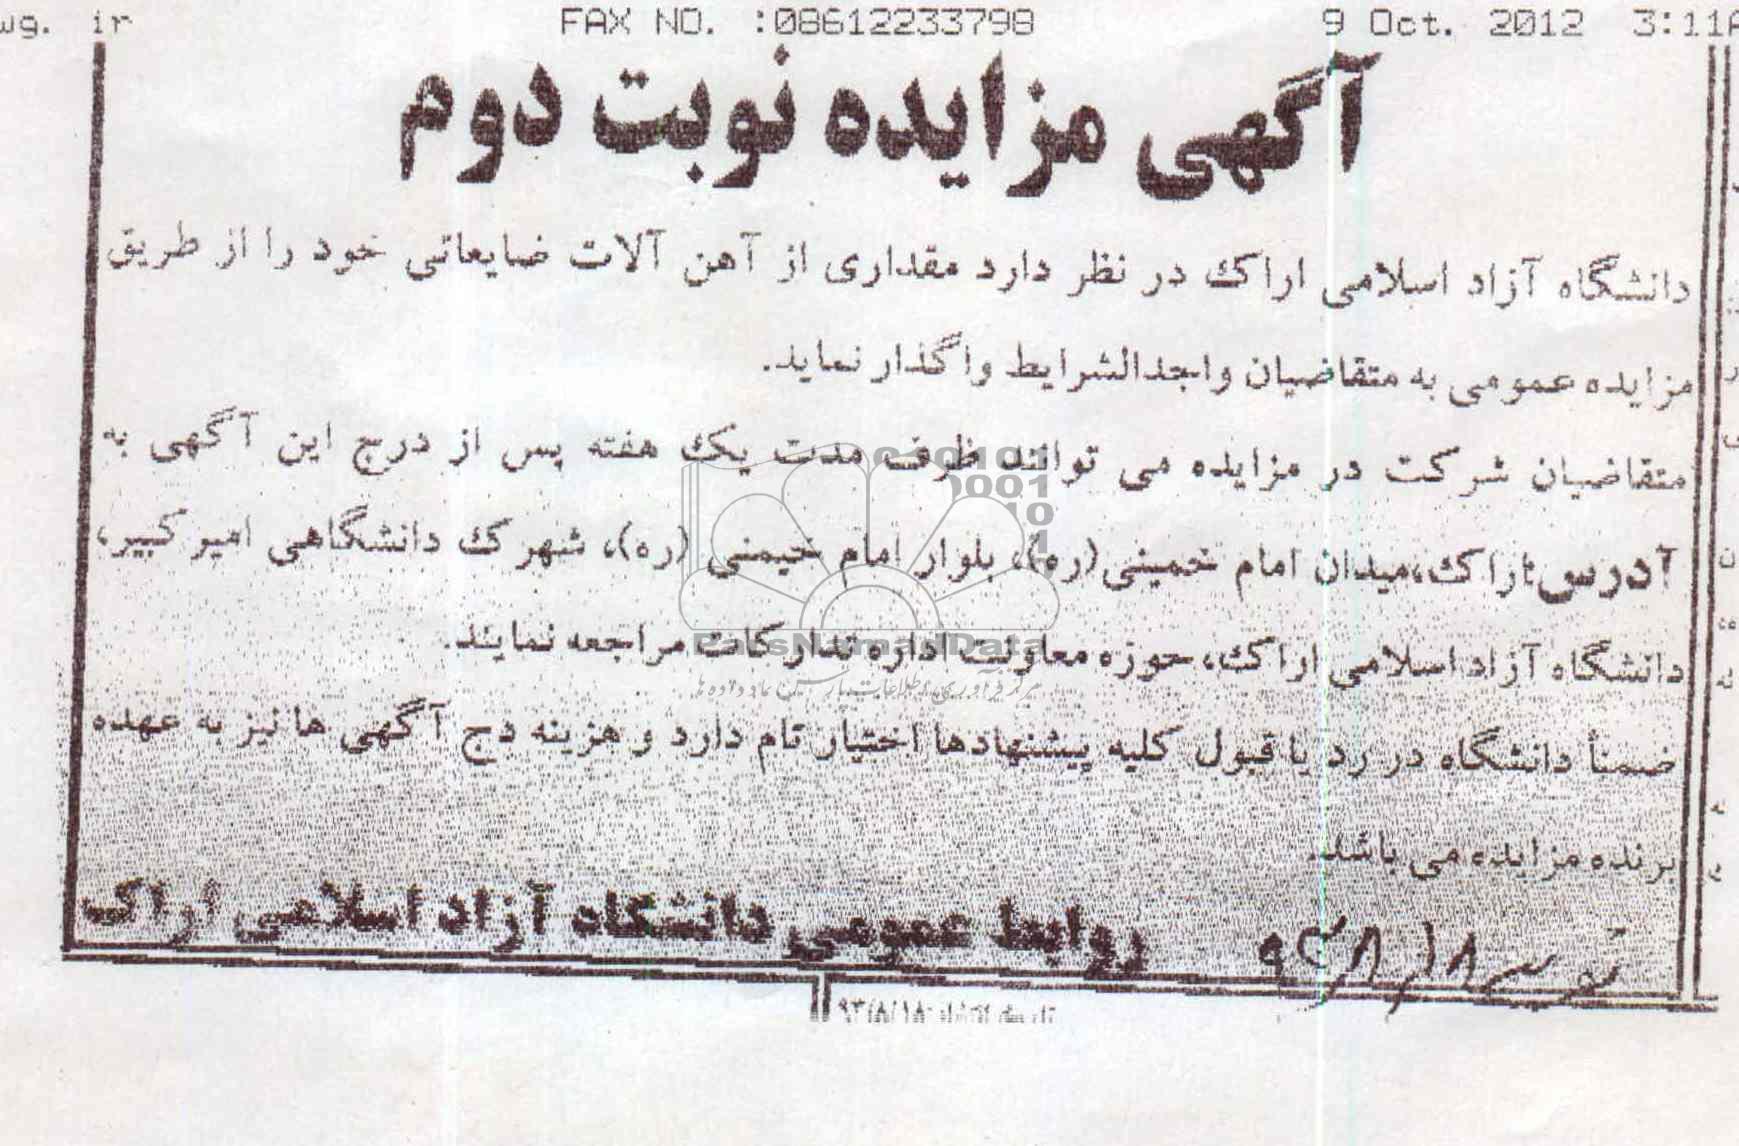 wg. ir FAX NO. :08612233798 9 Oct. 2012 3:11A
آگهی مزایده نوبت دوم
دانشگاه آزاد اسلامی اراک در نظر دارد مقداری از آهن آلات ضایعاتی خود را از طریق
مزایده عمومی به متقاضیان واجدالشرایط واگذار نماید.
متقاضیان شرکت در مزایده می توانند ظرف مدت یک هفته پس از درج این آگهی به
آدرس:اراک،میدان امام خمینی(ره)، بلوار امام خیمنی (ره)، شهرک دانشگاهی امیرکبیر،
دانشگاه آزاد اسلامی اراک، حوزه معاونت اداره تدارکات مراجعه نمایند.
ParsNamadData
ضمناً دانشگاه در رد یا قبول کلیه پیشنهادها اختیار تام دارد و هزینه دج آگهی ها نیز به عهده
برنده مزایده می باشد.
روابط عمومی دانشگاه آزاد اسلامی اراک
۹۳/۸/۱۸
تاریخ انتشار: ۹۳/۸/۱۸